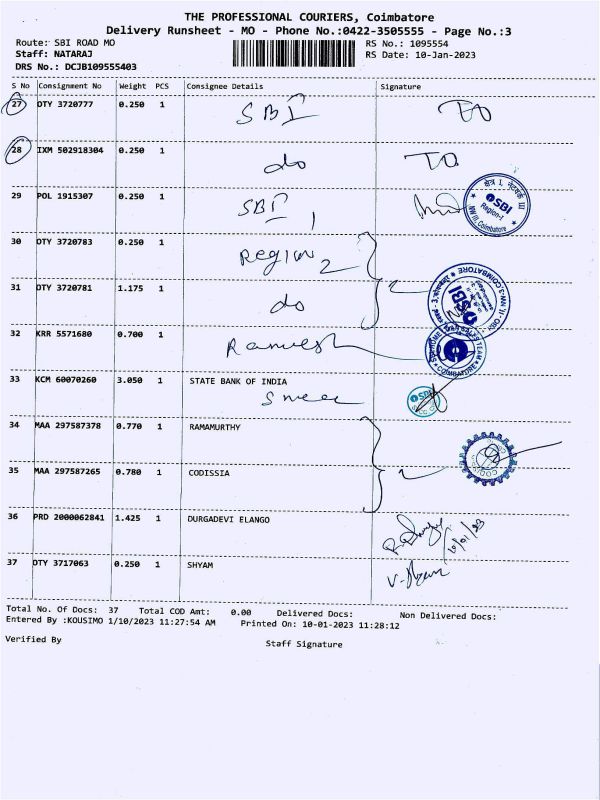 THE PROFESSIONAL COURIERS, Coimbatore
Delivery Runsheet - MO - Phone No.:0422-3505555 - Page No.:3
Route: SBI ROAD MO RS No.: 1095554
Staff: NATARAJ RS Date: 10-Jan-2023
DRS No.: DCJB109555403
S No Consignment No Weight PCS Consignee Details Signature
27 OTY 3720777 0.250 1 SBI TO
28 IXM 502918304 0.250 1 do TO
29 POL 1915307 0.250 1 SBI 1
SBI Region-I
NW III, Coimbatore
30 OTY 3720783 0.250 1 Region 2
31 OTY 3720781 1.175 1 do
SBI
32 KRR 5571680 0.700 1 Ramesh
COIMBATORE
33 KCM 60070260 3.050 1 STATE BANK OF INDIA
SBI
34 MAA 297587378 0.770 1 RAMAMURTHY
35 MAA 297587265 0.780 1 CODISSIA
36 PRD 2000062841 1.425 1 DURGADEVI ELANGO
10/01/23
37 OTY 3717063 0.250 1 SHYAM
Total No. Of Docs: 37 Total COD Amt: 0.00 Delivered Docs: Non Delivered Docs:
Entered By :KOUSIMO 1/10/2023 11:27:54 AM Printed On: 10-01-2023 11:28:12
Verified By Staff Signature